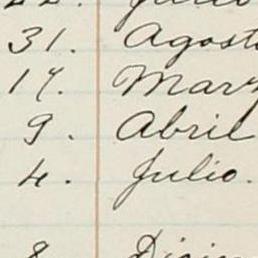 22. Julio
31. Agosto
17. Marz
9. Abril
4. Julio.
8. Dicim